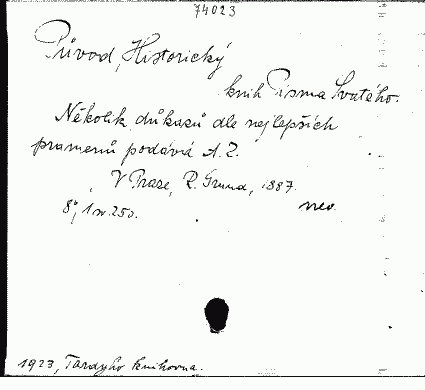 74023
Původ, Historický
knih Písma Svatého.
Několik důkazů dle nejlepších
pramenů podává A. Z.
V Praze, R. Grund, 1887.
8°, 1 n. 250. nev.
1923, Tardyho knihovna.